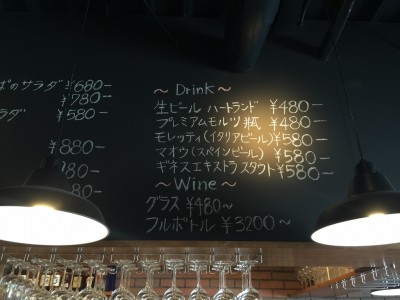 ぱのサラダ ¥680-
¥780-
ラダ ¥580-
¥880-
80-
80-
～ Drink ～
生ビール ハートランド ¥480-
プレミアムモルツ瓶 ¥480-
モレッティ(イタリアビール)¥580-
マオウ(スペインビール) ¥580-
ギネスエキストラスタウト¥580-
～Wine～
グラス ¥480～
フルボトル ¥3200～